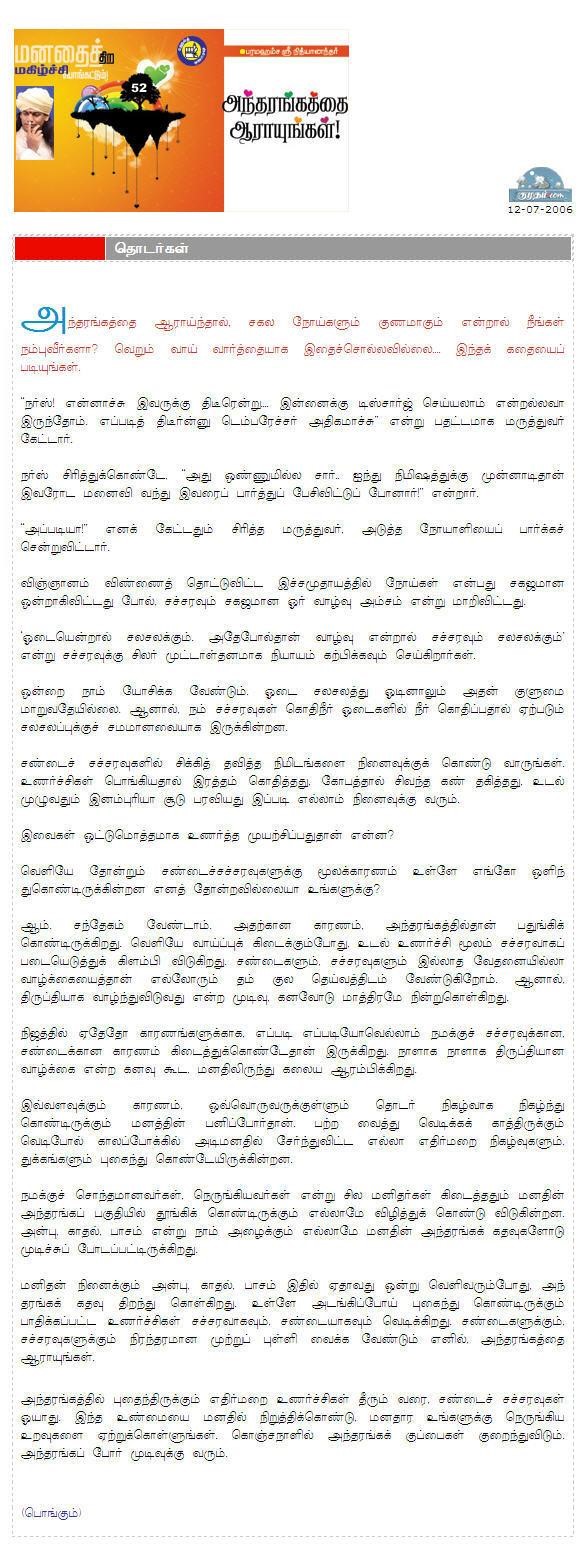 மனதைத் திற
மகிழ்ச்சி பொங்கட்டும்!
52
பரமஹம்ச ஸ்ரீ நித்யானந்தர்
அந்தரங்கத்தை
ஆராயுங்கள்!
குமுதம்.com
12-07-2006
தொடர்கள்
அந்தரங்கத்தை ஆராய்ந்தால், சகல நோய்களும் குணமாகும் என்றால் நீங்கள்
நம்புவீர்களா? வெறும் வாய் வார்த்தையாக இதைச்சொல்லவில்லை.... இந்தக் கதையைப்
படியுங்கள்.
“நர்ஸ்! என்னாச்சு இவருக்கு திடீரென்று... இன்னைக்கு டிஸ்சார்ஜ் செய்யலாம் என்றல்லவா
இருந்தோம். எப்படித் திடீர்னு டெம்பரேச்சர் அதிகமாச்சு” என்று பதட்டமாக மருத்துவர்
கேட்டார்.
நர்ஸ் சிரித்துக்கொண்டே, “அது ஒண்ணுமில்ல சார்.. ஐந்து நிமிஷத்துக்கு முன்னாடிதான்
இவரோட மனைவி வந்து இவரைப் பார்த்துப் பேசிவிட்டுப் போனார்!” என்றார்.
“அப்படியா!” எனக் கேட்டதும் சிரித்த மருத்துவர், அடுத்த நோயாளியைப் பார்க்கச்
சென்றுவிட்டார்.
விஞ்ஞானம் விண்ணைத் தொட்டுவிட்ட இச்சமுதாயத்தில் நோய்கள் என்பது சகஜமான
ஒன்றாகிவிட்டது போல், சச்சரவும் சகஜமான ஓர் வாழ்வு அம்சம் என்று மாறிவிட்டது.
‘ஓடையென்றால் சலசலக்கும். அதேபோல்தான் வாழ்வு என்றால் சச்சரவும் சலசலக்கும்’
என்று சச்சரவுக்கு சிலர் முட்டாள்தனமாக நியாயம் கற்பிக்கவும் செய்கிறார்கள்.
ஒன்றை நாம் யோசிக்க வேண்டும். ஓடை சலசலத்து ஓடினாலும் அதன் குளுமை
மாறுவதேயில்லை. ஆனால், நம் சச்சரவுகள் கொதிநீர் ஓடைகளில் நீர் கொதிப்பதால் ஏற்படும்
சலசலப்புக்குச் சமமானவையாக இருக்கின்றன.
சண்டைச் சச்சரவுகளில் சிக்கித் தவித்த நிமிடங்களை நினைவுக்குக் கொண்டு வாருங்கள்.
உணர்ச்சிகள் பொங்கியதால் இரத்தம் கொதித்தது, கோபத்தால் சிவந்த கண் தகித்தது, உடல்
முழுவதும் இனம்புரியா சூடு பரவியது இப்படி எல்லாம் நினைவுக்கு வரும்.
இவைகள் ஒட்டுமொத்தமாக உணர்த்த முயற்சிப்பதுதான் என்ன?
வெளியே தோன்றும் சண்டைச்சச்சரவுகளுக்கு மூலக்காரணம் உள்ளே எங்கோ ஒளிந்
துகொண்டிருக்கின்றன எனத் தோன்றவில்லையா உங்களுக்கு?
ஆம், சந்தேகம் வேண்டாம். அதற்கான காரணம், அந்தரங்கத்தில்தான் பதுங்கிக்
கொண்டிருக்கிறது. வெளியே வாய்ப்புக் கிடைக்கும்போது, உடல் உணர்ச்சி மூலம் சச்சரவாகப்
படையெடுத்துக் கிளம்பி விடுகிறது. சண்டைகளும், சச்சரவுகளும் இல்லாத வேதனையில்லா
வாழ்க்கையைத்தான் எல்லோரும் தம் குல தெய்வத்திடம் வேண்டுகிறோம். ஆனால்,
திருப்தியாக வாழ்ந்துவிடுவது என்ற முடிவு, கனவோடு மாத்திரமே நின்றுகொள்கிறது.
நிஜத்தில் ஏதேதோ காரணங்களுக்காக, எப்படி எப்படியோவெல்லாம் நமக்குச் சச்சரவுக்கான,
சண்டைக்கான காரணம் கிடைத்துக்கொண்டேதான் இருக்கிறது. நாளாக நாளாக திருப்தியான
வாழ்க்கை என்ற கனவு கூட, மனதிலிருந்து கலைய ஆரம்பிக்கிறது.
இவ்வளவுக்கும் காரணம், ஒவ்வொருவருக்குள்ளும் தொடர் நிகழ்வாக நிகழ்ந்து
கொண்டிருக்கும் மனத்தின் பனிப்போர்தான். பற்ற வைத்து வெடிக்கக் காத்திருக்கும்
வெடிபோல் காலப்போக்கில் அடிமனதில் சேர்ந்துவிட்ட எல்லா எதிர்மறை நிகழ்வுகளும்,
துக்கங்களும் புகைந்து கொண்டேயிருக்கின்றன.
நமக்குச் சொந்தமானவர்கள், நெருங்கியவர்கள் என்று சில மனிதர்கள் கிடைத்ததும் மனதின்
அந்தரங்கப் பகுதியில் தூங்கிக் கொண்டிருக்கும் எல்லாமே விழித்துக் கொண்டு விடுகின்றன.
அன்பு, காதல், பாசம் என்று நாம் அழைக்கும் எல்லாமே மனதின் அந்தரங்கக் கதவுகளோடு
முடிச்சுப் போடப்பட்டிருக்கிறது.
மனிதன் நினைக்கும் அன்பு, காதல், பாசம் இதில் ஏதாவது ஒன்று வெளிவரும்போது, அந்
தரங்கக் கதவு திறந்து கொள்கிறது. உள்ளே அடங்கிப்போய் புகைந்து கொண்டிருக்கும்
பாதிக்கப்பட்ட உணர்ச்சிகள் சச்சரவாகவும், சண்டையாகவும் வெடிக்கிறது. சண்டைகளுக்கும்,
சச்சரவுகளுக்கும் நிரந்தரமான முற்றுப் புள்ளி வைக்க வேண்டும் எனில், அந்தரங்கத்தை
ஆராயுங்கள்.
அந்தரங்கத்தில் புதைந்திருக்கும் எதிர்மறை உணர்ச்சிகள் தீரும் வரை, சண்டைச் சச்சரவுகள்
ஓயாது. இந்த உண்மையை மனதில் நிறுத்திக்கொண்டு, மனதார உங்களுக்கு நெருங்கிய
உறவுகளை ஏற்றுக்கொள்ளுங்கள். கொஞ்சநாளில் அந்தரங்கக் குப்பைகள் குறைந்துவிடும்.
அந்தரங்கப் போர் முடிவுக்கு வரும்.
(பொங்கும்)